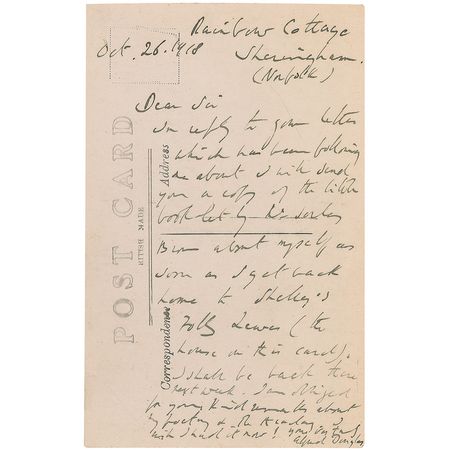 Rainbow Cottage
Oct. 26. 1918
Sheringham
(Norfolk)
Dear Sir
In reply to your letter
which has been following
me about I will send
you a copy of the little
booklet by
about myself as
soon as I get back
home to Shelley's
Folly Lewes (the
house on this card).
I shall be back there
next week. I am obliged
for your kind remarks about
my poetry & the Academy. I
wish I had it now! yours
Alfred Douglas
POST CARD
BRITISH MADE
Address
Correspondence